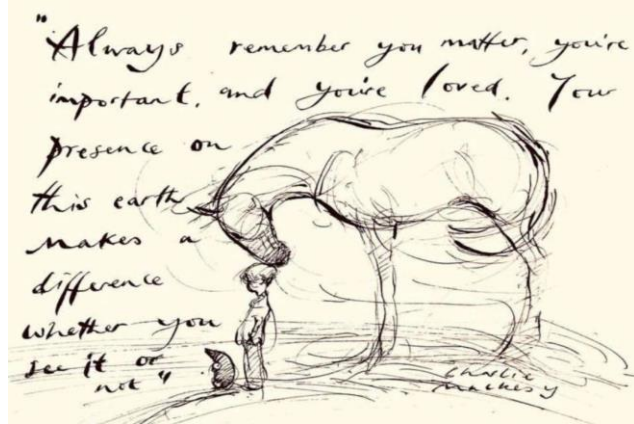 "Always remember you matter, you're
important, and you're loved. Your
presence on
this earth
makes a
difference
whether you
see it or
not"
Charlie
Mackesy